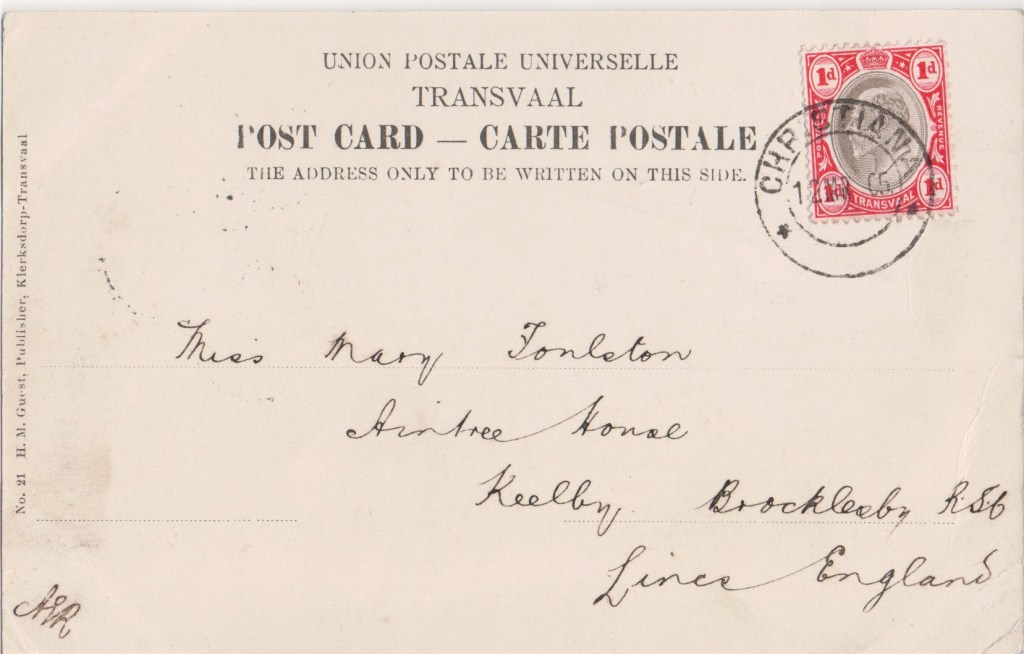 UNION POSTALE UNIVERSELLE
TRANSVAAL
POST CARD — CARTE POSTALE
THE ADDRESS ONLY TO BE WRITTEN ON THIS SIDE.
1d 1d
POSTAGE REVENUE
1d TRANSVAAL 1d
CHRISTIANA
12 05
No. 21 H. M. Guest, Publisher, Klerksdorp-Transvaal
Miss Mary
Aintree House
Keelby, Brocklesby
Lincs England